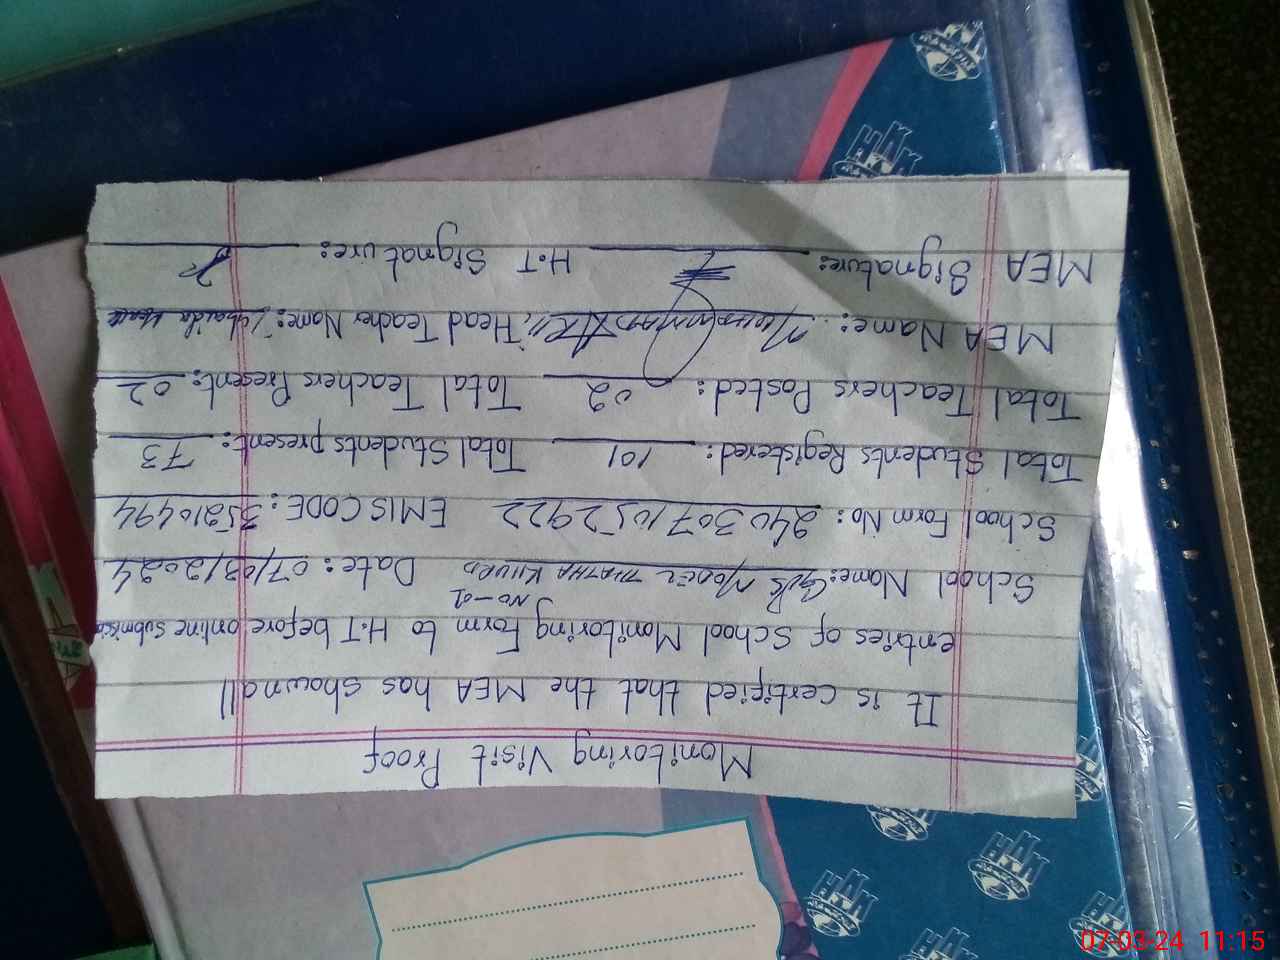 Monitoring Visit Proof
It is certified that the MEA has shown all
entries of School Monitoring Form to H.T before online submission
School Name: GPS MODEL THATHA KHURD NO-2 Date: 07/03/2024
School Form No: 2403071052922 EMIS CODE: 35210494
Total Students Registered: 101 Total Students present: 73
Total Teachers Posted: 02 Total Teachers Present: 02
MEA Name: Head Teacher Name:
MEA Signature: H.T Signature:
07-03-24 11:15